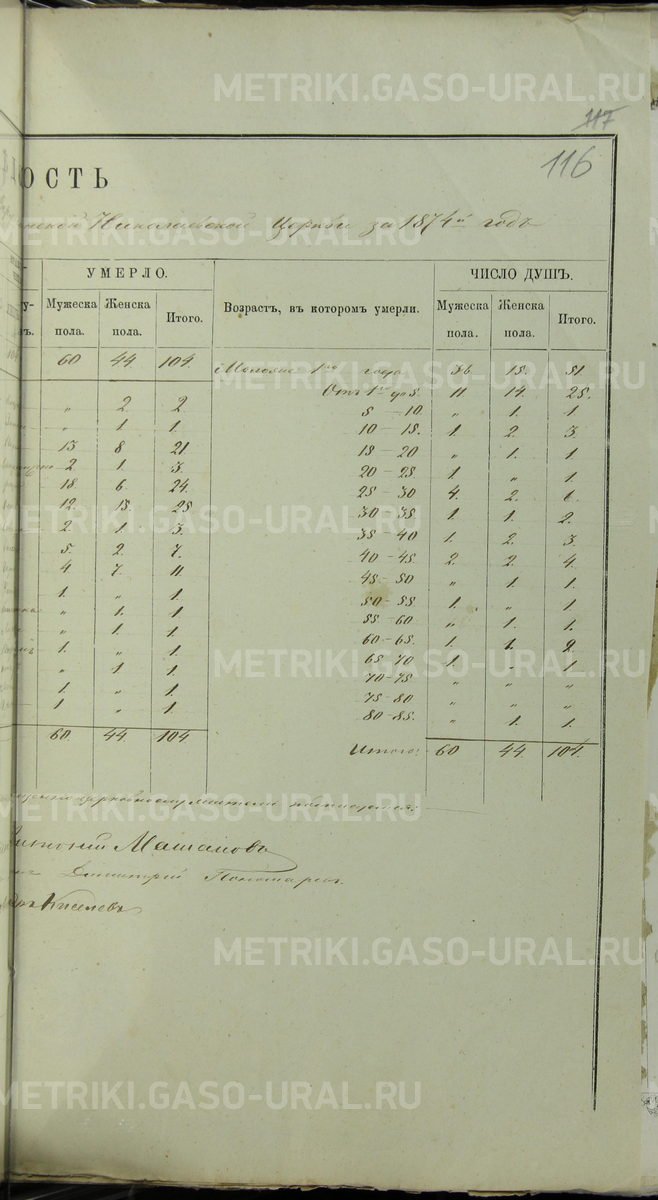 METRIKI.GASO-URAL.RU
117
116
ОСТЬ
Николаевской Церкви за 1874й годъ
УМЕРЛО. ЧИСЛО ДУШЪ.
Мужеска пола. Женска пола. Итого. Возрастъ, въ которомъ умерли. Мужеска пола. Женска пола. Итого.
60 44 104 Моложе 1го года 36 15. 51
Отъ 1го до 5. 11 14. 25.
„ 2 2 5 — 10 „ 1. 1
„ 1. 1. 10 — 15. 1. 2. 3.
13 8 21 15 — 20 „ 1. 1
2 1. 3. 20 — 25 1. „ 1.
18. 6. 24. 25 — 30 4. 2. 6.
12. 13. 25 30 — 35 1. 1. 2.
2. 1. 3. 35 — 40 1. 2. 3.
5. 2. 7. 40 — 45 2. 2. 4.
4 7. 11 45 — 50 „ 1. 1.
1. „ 1. 50 — 55 1. „ 1
„ 1. 1. 55 — 60 „ 1. 1.
„ 1. 1. 60 — 65. 1. 1. 2.
1. „ 1. 65 — 70 1. „ 1.
„ 1 1. 70 — 75 „ „ „
1. „ 1. 75 — 80 „ „ „
1 „ 1. 80 — 85. „ 1. 1.
60 44 104 Итого: 60 44. 104.
Машановъ
Димитрій Пономаревъ
Киселевъ